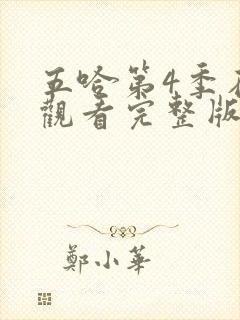 五哈第4季
觀看完整版
鄭小華